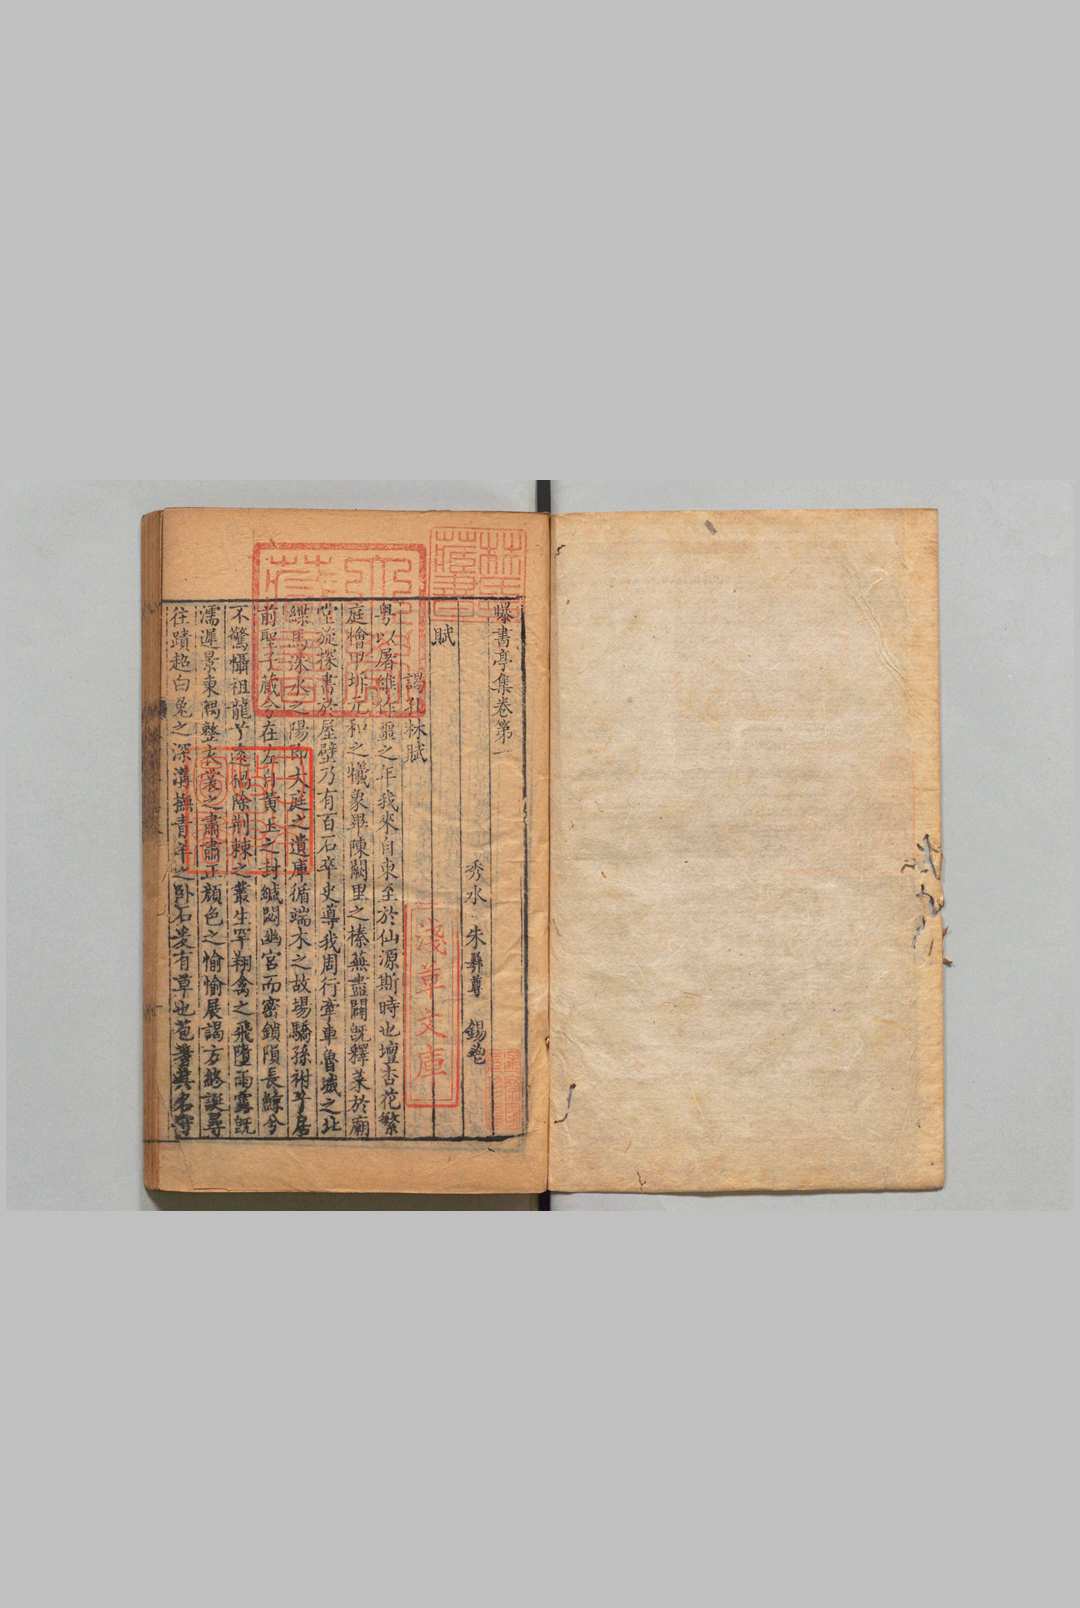 曝書亭集卷第一
秀水 朱彝尊 錫鬯
賦
謁孔林賦
粵以屠維作噩之年我來自東至於仙源斯時也壇杏花繁
庭檜甲坼元和之犧象畢陳闕里之榛蕪盡闢既釋菜於廟
堂旋探書於屋壁乃有百石卒史導我周行牽車魯城之北
緤馬洙水之陽即大庭之遺庫循端木之故場驕孫祔兮居
前聖子藏兮在左膋黃土之封緘閟幽宮而密鎖隕長鯨兮
不驚懾祖龍兮遠禍除荊棘之叢生罕翔禽之飛墮雨露既
濡遲景東隅整衣裳之肅肅正顏色之愉愉展謁方終誕尋
往蹟超白兔之深溝撫青羊之臥石爰有草也苞蓍其名守
淺草文庫
林氏藏書